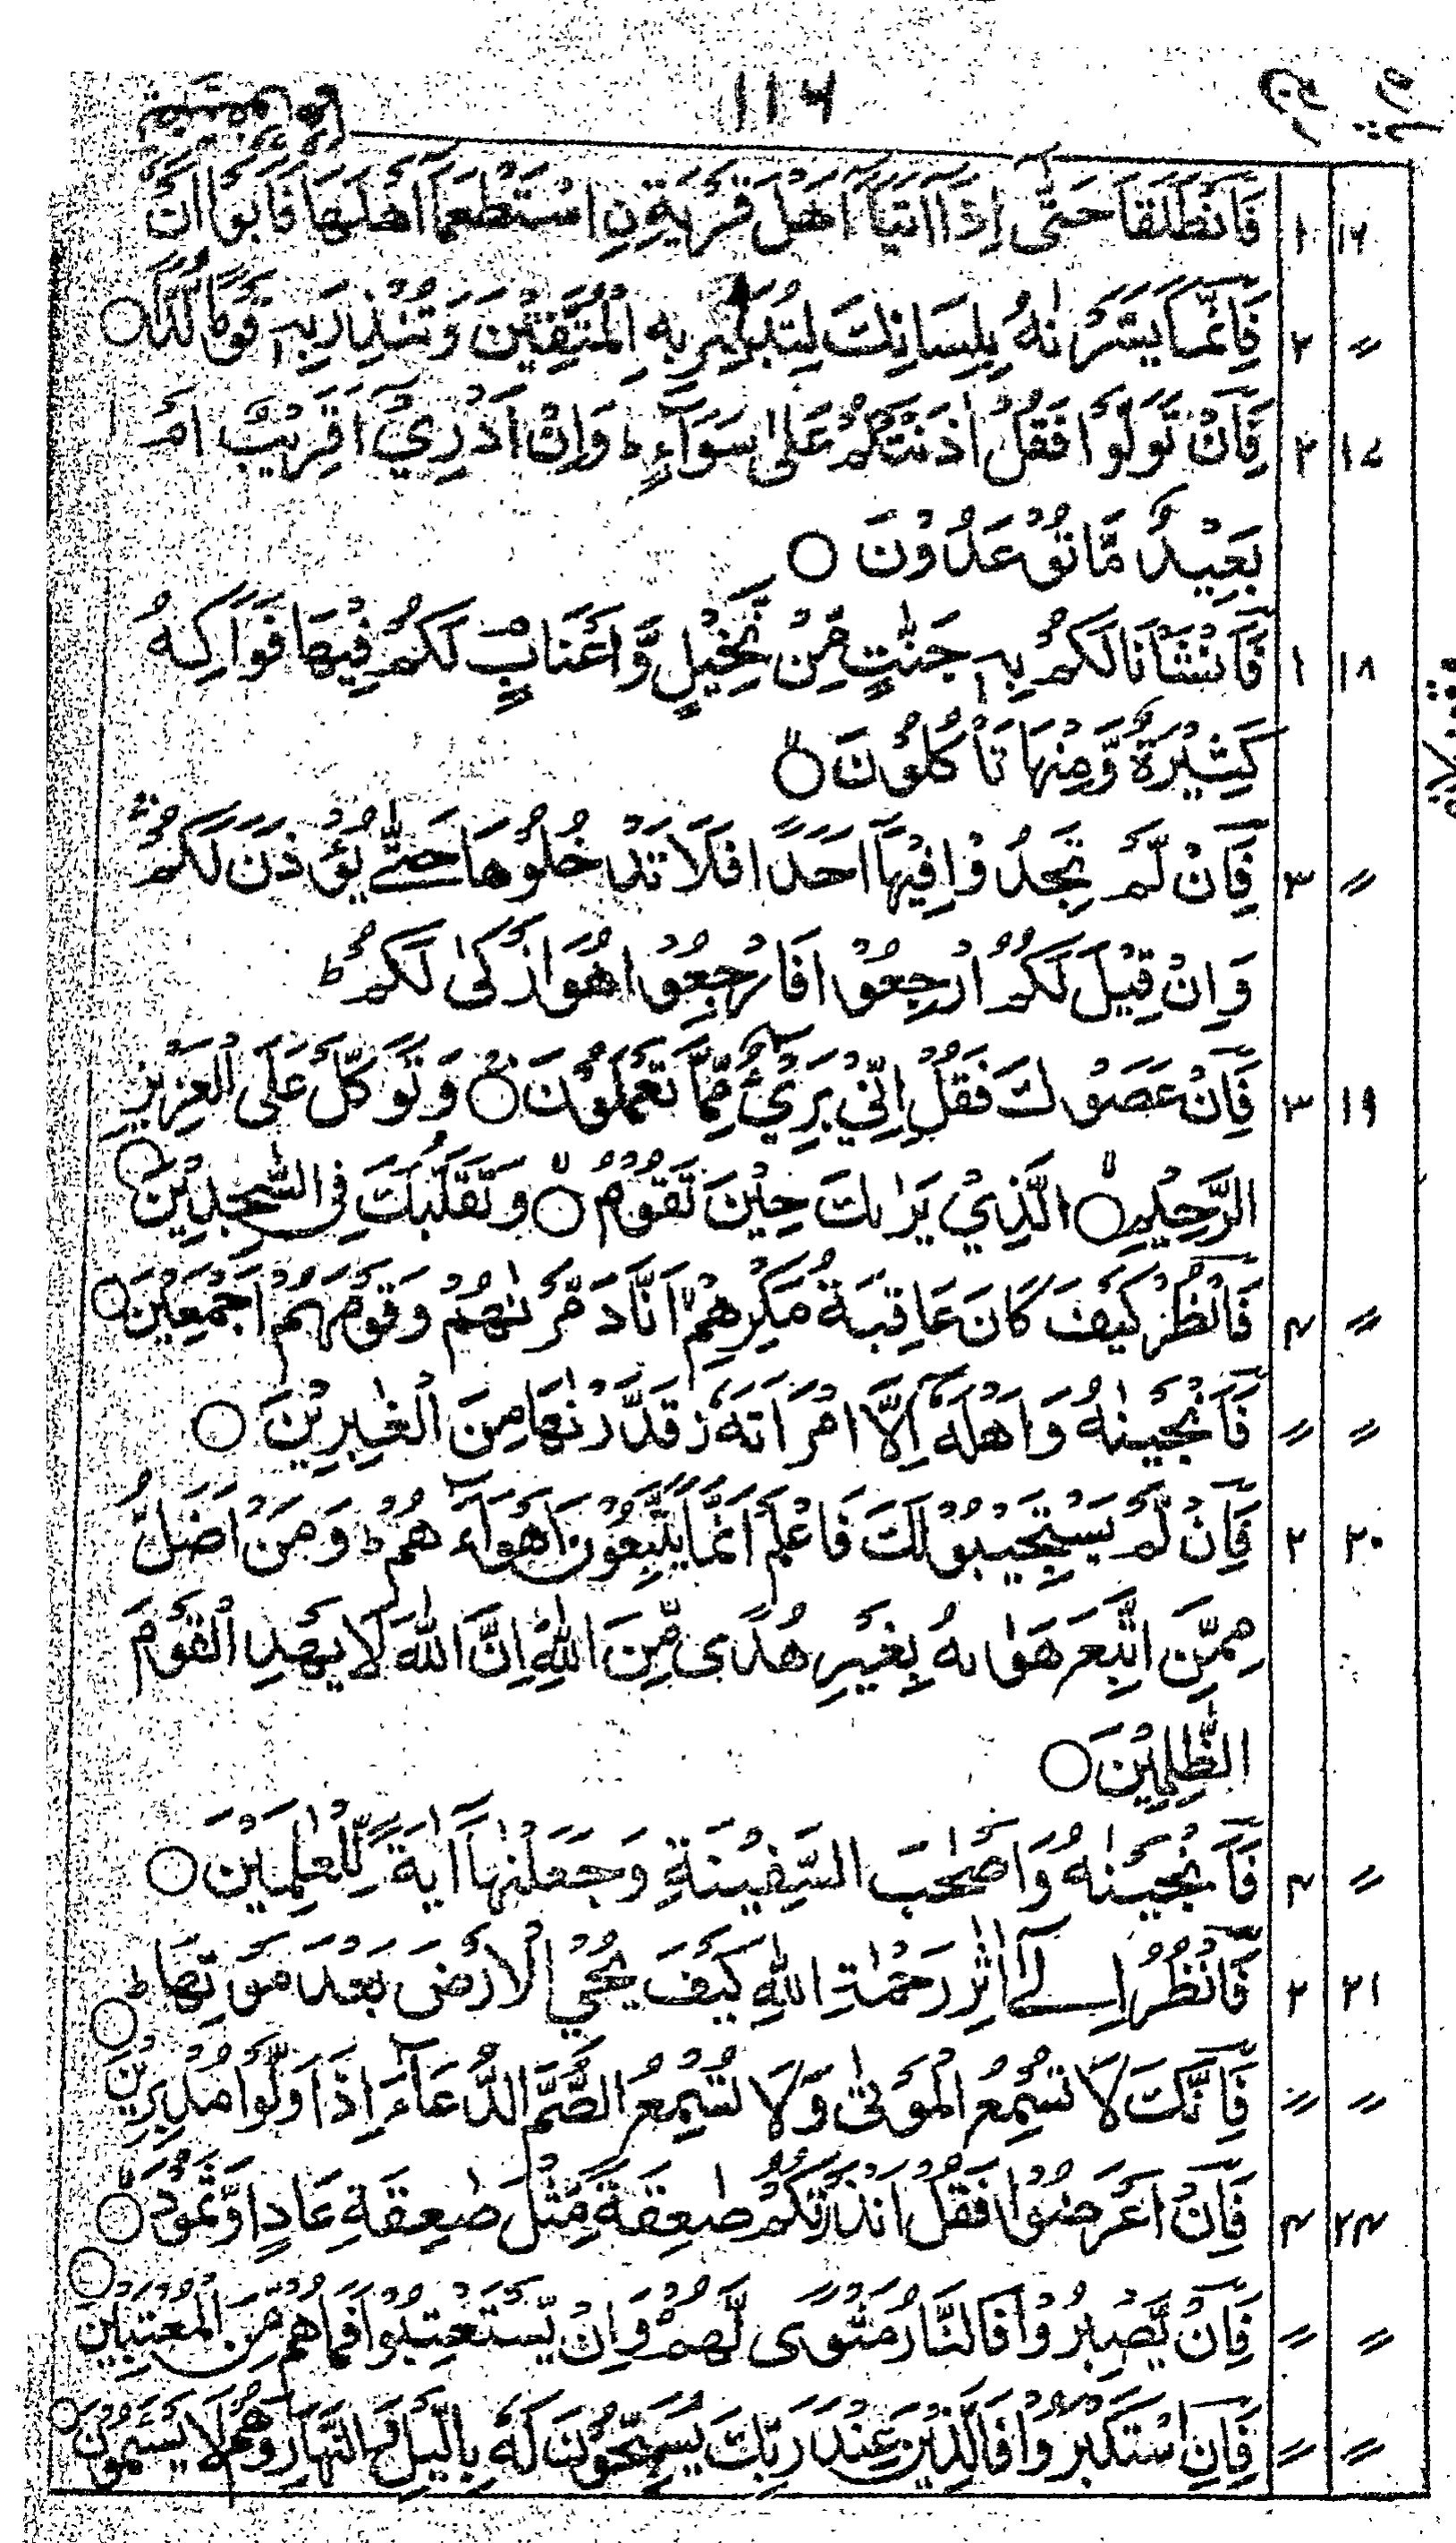 ۱۱۶
۱۶ ۱ فَانْطَلَقَا حَتّٰۤى اِذَاۤ اَتَيَاۤ اَهْلَ قَرْيَةِ ۣاسْتَطْعَمَاۤ اَهْلَهَا فَاَبَوْا اَنْ
〃 ۲ فَاِنَّمَا يَسَّرْنٰهُ بِلِسَانِكَ لِتُبَشِّرَ بِهِ الْمُتَّقِيْنَ وَتُنْذِرَ بِهٖ قَوْمًا لُّدًّا ○
۱۷ ۲ فَاِنْ تَوَلَّوْا فَقُلْ اٰذَنْتُكُمْ عَلٰى سَوَآءٍ ؕ وَاِنْ اَدْرِيْۤ اَقَرِيْبٌ اَمْ
بَعِيْدٌ مَّا تُوْعَدُوْنَ ○
۱۸ ۱ فَاَنْشَاْنَا لَكُمْ بِهٖ جَنّٰتٍ مِّنْ نَّخِيْلٍ وَّاَعْنَابٍ لَكُمْ فِيْهَا فَوَاكِهُ
كَثِيْرَةٌ وَّمِنْهَا تَاْكُلُوْنَ ○ۙ
〃 ۳ فَاِنْ لَّمْ تَجِدُوْا فِيْهَاۤ اَحَدًا فَلَا تَدْخُلُوْهَا حَتّٰى يُؤْذَنَ لَكُمْ ۚ
وَاِنْ قِيْلَ لَكُمُ ارْجِعُوْا فَارْجِعُوْا هُوَ اَزْكٰى لَكُمْ ؕ
۱۹ ۳ فَاِنْ عَصَوْكَ فَقُلْ اِنِّيْ بَرِيْٓءٌ مِّمَّا تَعْمَلُوْنَ ○ۚ وَتَوَكَّلْ عَلَى الْعَزِيْزِ
الرَّحِيْمِ ○ۙ الَّذِيْ يَرٰىكَ حِيْنَ تَقُوْمُ ○ۙ وَتَقَلُّبَكَ فِى السّٰجِدِيْنَ ○
〃 ۴ فَانْظُرْ كَيْفَ كَانَ عَاقِبَةُ مَكْرِهِمْ ۙ اَنَّا دَمَّرْنٰهُمْ وَقَوْمَهُمْ اَجْمَعِيْنَ ○
〃 〃 فَاَنْجَيْنٰهُ وَاَهْلَهٗۤ اِلَّا امْرَاَتَهٗ ز قَدَّرْنٰهَا مِنَ الْغٰبِرِيْنَ ○
۲۰ ۲ فَاِنْ لَّمْ يَسْتَجِيْبُوْا لَكَ فَاعْلَمْ اَنَّمَا يَتَّبِعُوْنَ اَهْوَآءَهُمْ ؕ وَمَنْ اَضَلُّ
مِمَّنِ اتَّبَعَ هَوٰىهُ بِغَيْرِ هُدًى مِّنَ اللّٰهِ اِنَّ اللّٰهَ لَا يَهْدِى الْقَوْمَ
الظّٰلِمِيْنَ ○
〃 ۴ فَاَنْجَيْنٰهُ وَاَصْحٰبَ السَّفِيْنَةِ وَجَعَلْنٰهَاۤ اٰيَةً لِّلْعٰلَمِيْنَ ○
۲۱ ۲ فَانْظُرْ اِلٰٓى اٰثٰرِ رَحْمَتِ اللّٰهِ كَيْفَ يُحْيِ الْاَرْضَ بَعْدَ مَوْتِهَا ؕ
〃 〃 فَاِنَّكَ لَا تُسْمِعُ الْمَوْتٰى وَلَا تُسْمِعُ الصُّمَّ الدُّعَآءَ اِذَا وَلَّوْا مُدْبِرِيْنَ ○
۲۴ ۴ فَاِنْ اَعْرَضُوْا فَقُلْ اَنْذَرْتُكُمْ صٰعِقَةً مِّثْلَ صٰعِقَةِ عَادٍ وَّثَمُوْدَ ○ؕ
〃 〃 فَاِنْ يَّصْبِرُوْا فَالنَّارُ مَثْوًى لَّهُمْ وَاِنْ يَّسْتَعْتِبُوْا فَمَا هُمْ مِّنَ الْمُعْتَبِيْنَ ○
〃 〃 فَاِنِ اسْتَكْبَرُوْا فَالَّذِيْنَ عِنْدَ رَبِّكَ يُسَبِّحُوْنَ لَهٗ بِالَّيْلِ وَالنَّهَارِ وَهُمْ لَا يَسْـَٔمُوْنَ ○